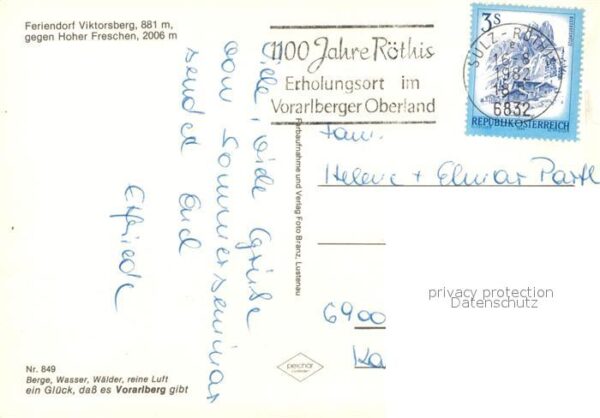 Feriendorf Viktorsberg, 881 m,
gegen Hoher Freschen, 2006 m
1100 Jahre Röthis
Erholungsort im
Vorarlberger Oberland
3 S
SULZ-RÖTHIS
1982
6832
REPUBLIK ÖSTERREICH
Viele, viele Grüße
vom Sommerseminar
sendet Euch
Elfriede
Farbaufnahme und Verlag Foto Branz, Lustenau
Fam.
Helene + Elmar Partl
6900
privacy protection
Datenschutz
Nr. 849
Berge, Wasser, Wälder, reine Luft
ein Glück, daß es Vorarlberg gibt